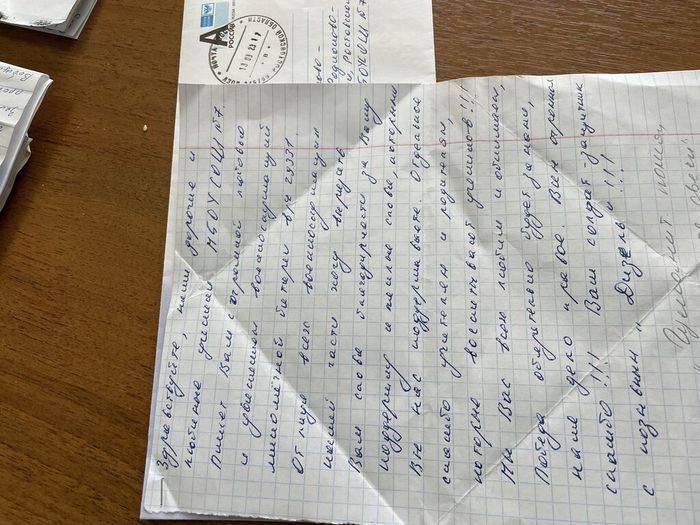 Здравствуйте, наши дорогие и
любимые ученики МБОУ СОШ №7.
Пишет Вам с огромной любовью
и уважением военнослужащий
миномётной батареи в/ч 29351.
От лица всех военнослужащих
нашей части хочу выразить
Вам слова благодарности за Вашу
поддержку и тёплые слова, которыми
Вы нас поддерживаете. Отдельное
спасибо учителям и родителям,
которые воспитывают учеников!!!
Мы Вас всех любим и обнимаем,
Победа обязательно будет за нами,
наше дело правое. Всем огромное
спасибо!!! Ваш солдат-защитник
с позывным "Дизель"!!!
ПОЧТА
РОССИИ
13 09 23 17
РОСТОВСКОЙ ОБЛАСТИ